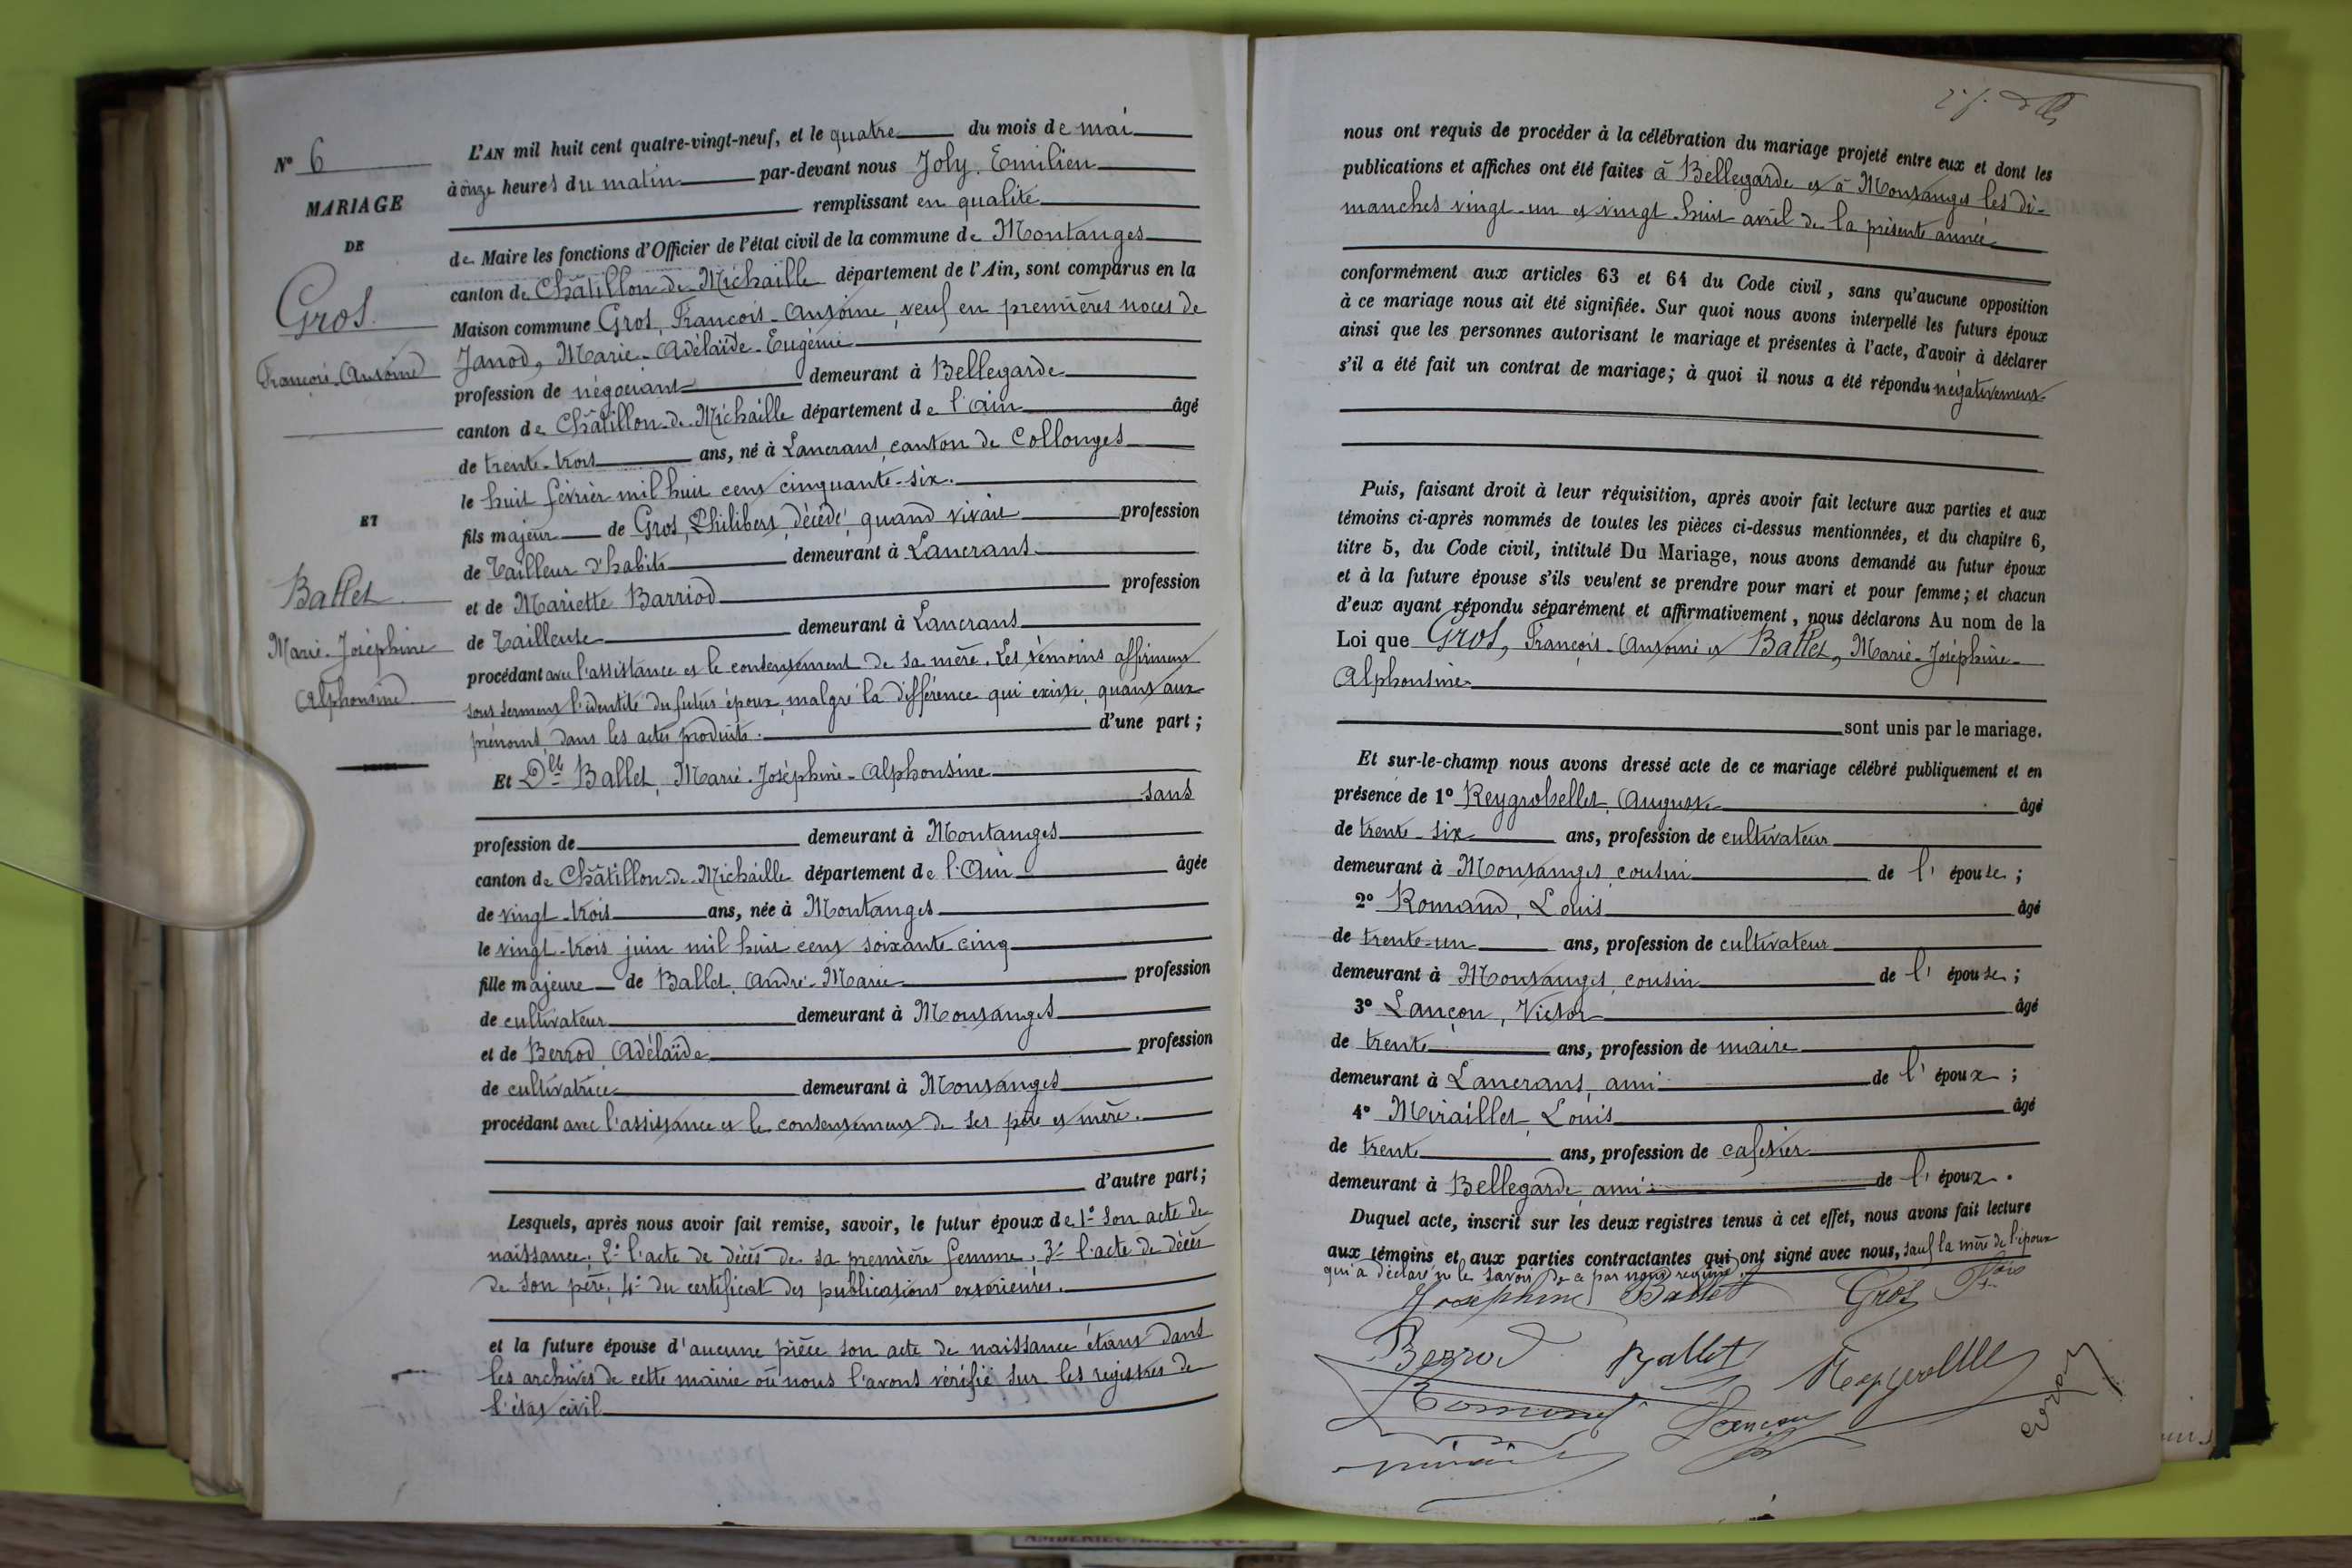 N° 6
MARIAGE
DE
Gros
François-Antoine
ET
Ballet
Marie-Joséphine
Alphonsine
L'AN mil huit cent quatre-vingt-neuf, et le quatre du mois de mai
à onze heures du matin par-devant nous Joly, Emilien
remplissant en qualité
de Maire les fonctions d'Officier de l'état civil de la commune de Montanges
canton de Châtillon-de-Michaille département de l'Ain, sont comparus en la
Maison commune Gros, François-Antoine, veuf en premières noces de
Janod, Marie-Adélaïde-Eugénie
profession de négociant demeurant à Bellegarde
canton de Châtillon-de-Michaille département de l'Ain âgé
de trente-trois ans, né à Lancrans, canton de Collonges
le huit février mil huit cent cinquante-six.
fils majeur de Gros, Philibert, décédé, quand vivait profession
de Tailleur d'habits demeurant à Lancrans
et de Mariette Barriod profession
de Tailleuse demeurant à Lancrans
procédant avec l'assistance et le consentement de sa mère. Les témoins affirment
sous serment l'identité du futur époux, malgré la différence qui existe, quant aux
prénoms, dans les actes produits. d'une part;
Et Dlle Ballet, Marie-Joséphine-Alphonsine
sans
profession de demeurant à Montanges
canton de Châtillon-de-Michaille département de l'Ain âgée
de vingt-trois ans, née à Montanges
le vingt-trois juin mil huit cent soixante-cinq
fille majeure de Ballet, André-Marie profession
de cultivateur demeurant à Montanges
et de Berrod, Adélaïde profession
de cultivatrice demeurant à Montanges
procédant avec l'assistance et le consentement de ses père et mère.
d'autre part;
Lesquels, après nous avoir fait remise, savoir, le futur époux de 1° son acte de
naissance; 2° l'acte de décès de sa première femme; 3° l'acte de décès
de son père; 4° du certificat des publications extérieures.
et la future épouse d'aucune pièce son acte de naissance étant dans
les archives de cette mairie où nous l'avons vérifié sur les registres de
l'état civil
nous ont requis de procéder à la célébration du mariage projeté entre eux et dont les
publications et affiches ont été faites à Bellegarde et à Montanges les di-
manches vingt-un et vingt-huit avril de la présente année
conformément aux articles 63 et 64 du Code civil, sans qu'aucune opposition
à ce mariage nous ait été signifiée. Sur quoi nous avons interpellé les futurs époux
ainsi que les personnes autorisant le mariage et présentes à l'acte, d'avoir à déclarer
s'il a été fait un contrat de mariage; à quoi il nous a été répondu négativement
Puis, faisant droit à leur réquisition, après avoir fait lecture aux parties et aux
témoins ci-après nommés de toutes les pièces ci-dessus mentionnées, et du chapitre 6,
titre 5, du Code civil, intitulé Du Mariage, nous avons demandé au futur époux
et à la future épouse s'ils veulent se prendre pour mari et pour femme; et chacun
d'eux ayant répondu séparément et affirmativement, nous déclarons Au nom de la
Loi que Gros, François-Antoine et Ballet, Marie-Joséphine-
Alphonsine
sont unis par le mariage.
Et sur-le-champ nous avons dressé acte de ce mariage célébré publiquement et en
présence de 1° Reygrobellet, Auguste âgé
de trente-six ans, profession de cultivateur
demeurant à Montanges, cousin de l'épouse;
2° Romand, Louis âgé
de trente-un ans, profession de cultivateur
demeurant à Montanges, cousin de l'épouse;
3° Lançon, Victor âgé
de trente ans, profession de maire
demeurant à Lancrans, ami de l'époux;
4° Miraillet, Louis âgé
de trente ans, profession de cafetier
demeurant à Bellegarde, ami de l'époux.
Duquel acte, inscrit sur les deux registres tenus à cet effet, nous avons fait lecture
aux témoins et aux parties contractantes qui ont signé avec nous, sauf la mère de l'époux
qui a déclaré ne le savoir de ce par nous requise.
Joséphine Ballet Gros Fçois
Berrod Ballet
Romand Lançon